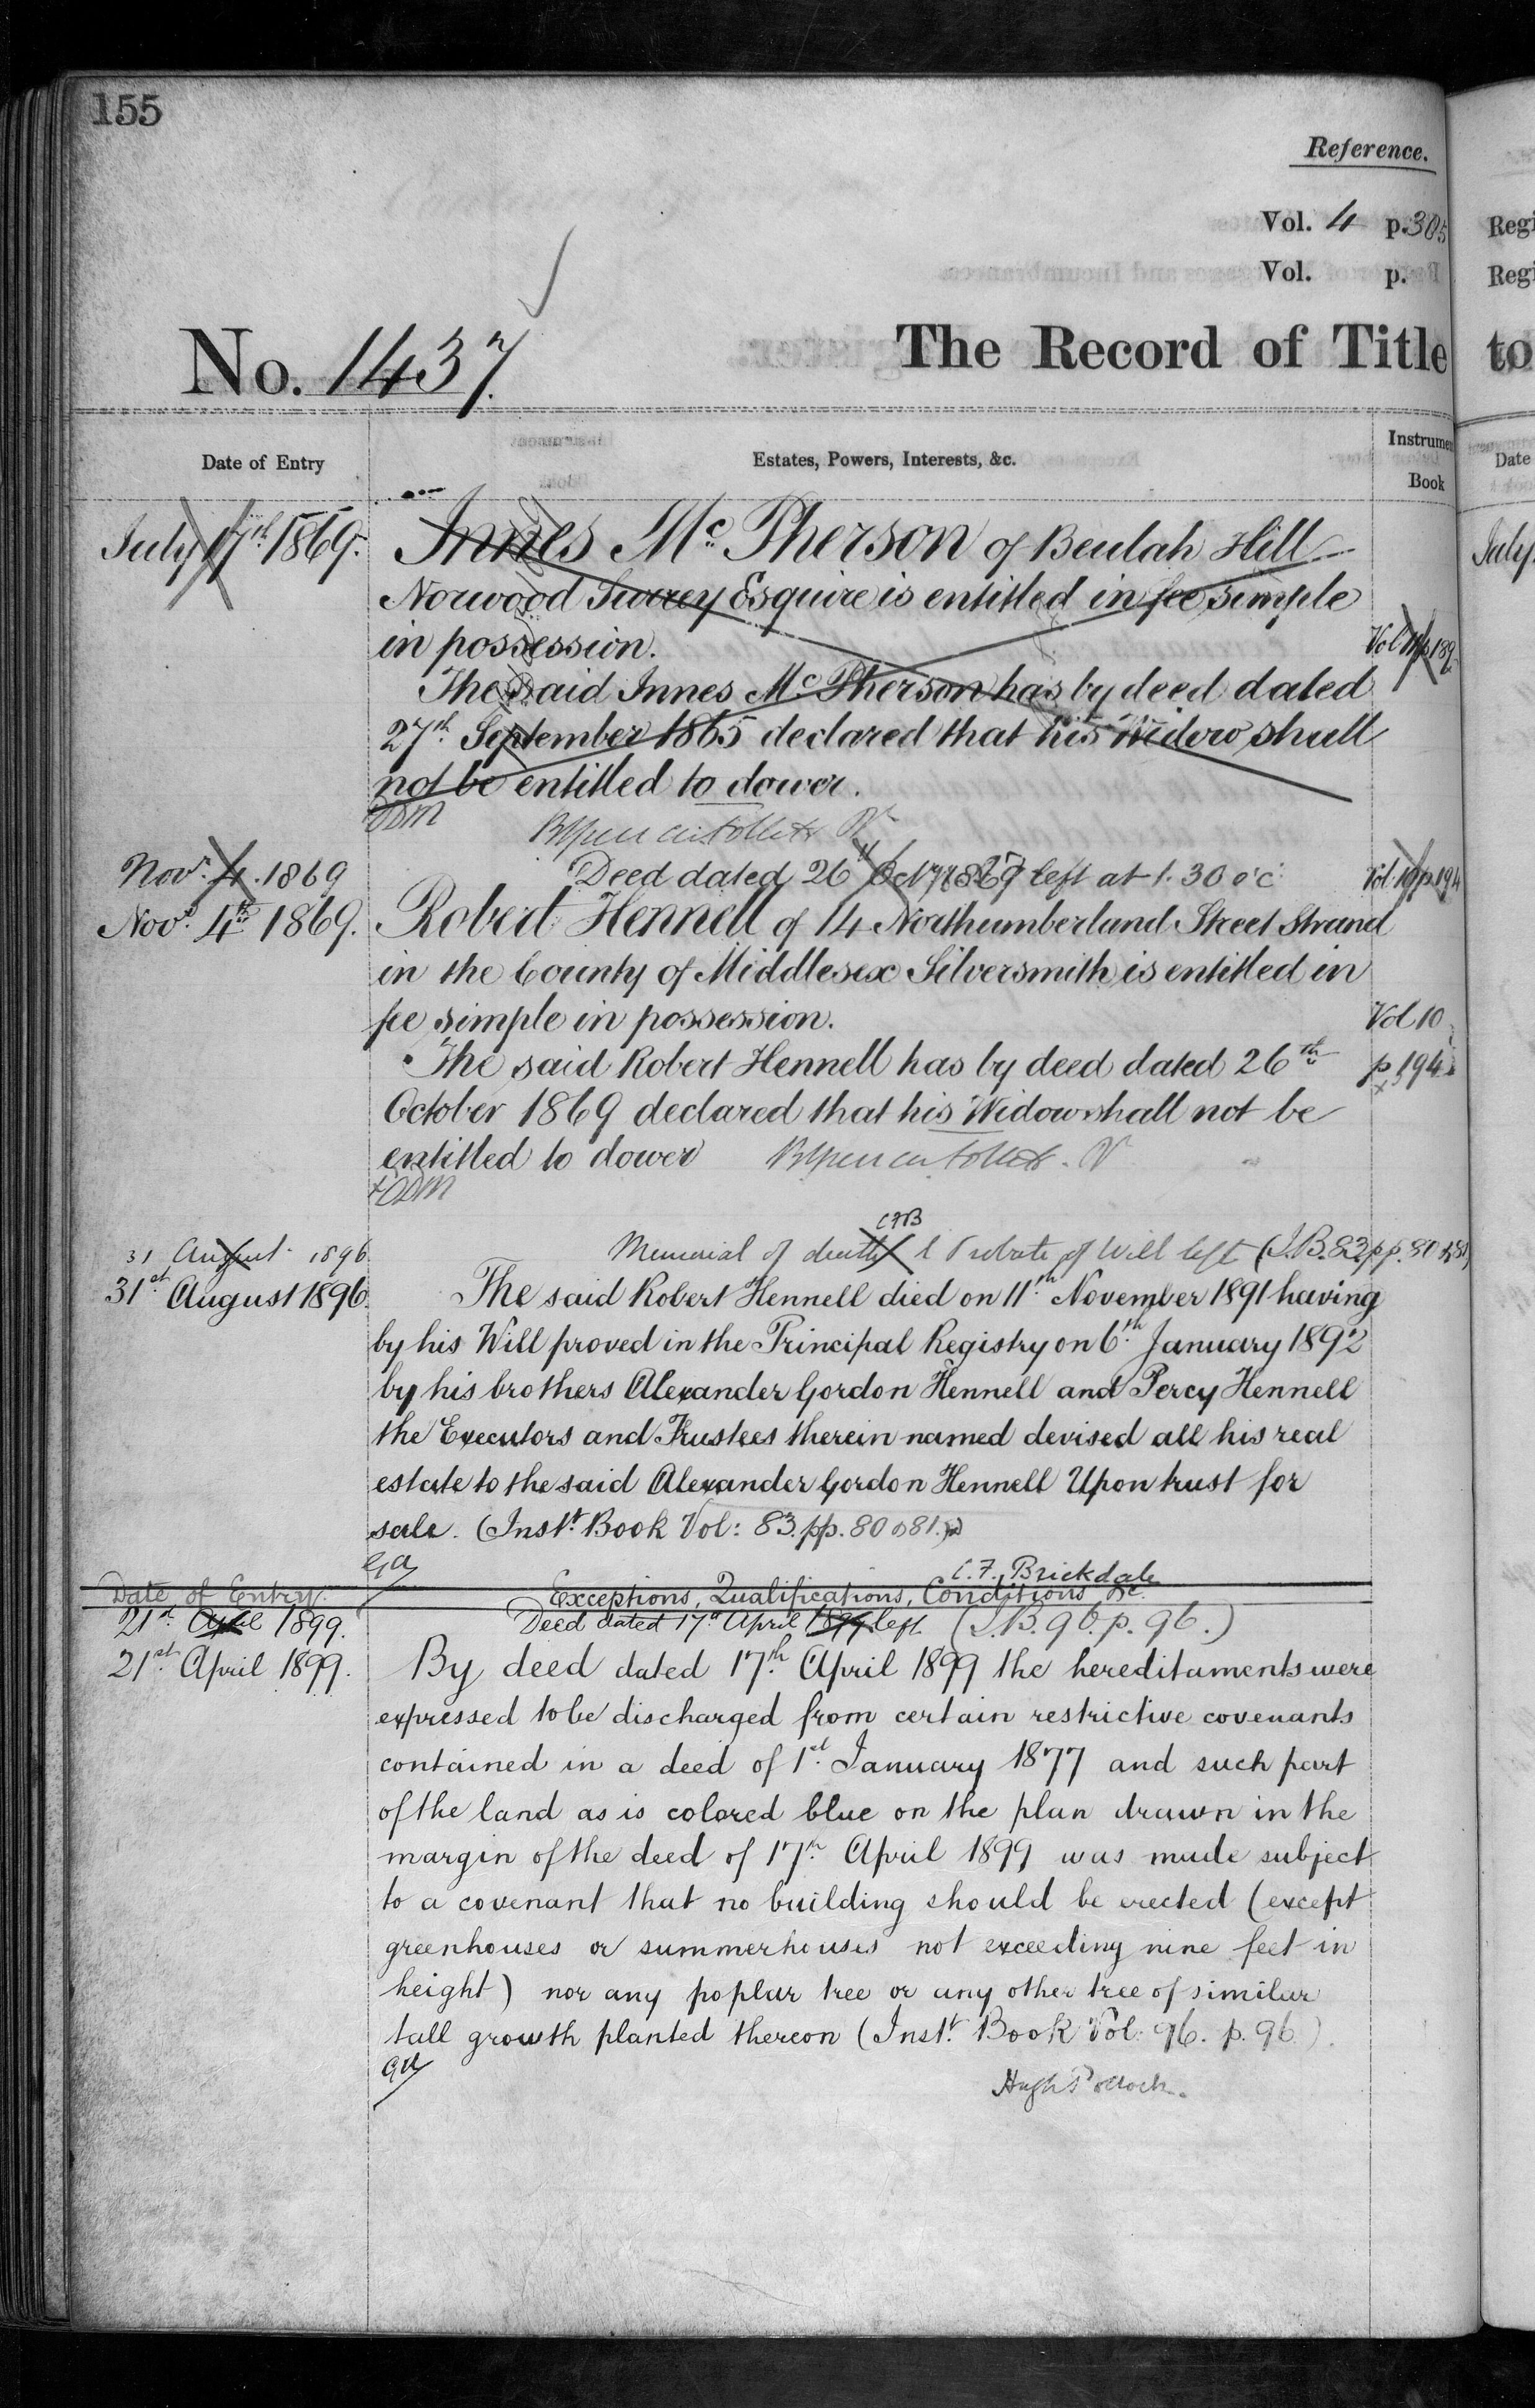 155
Reference.
Vol. 4 p. 305
Vol. p.
No. 1437.
The Record of Title
Date of Entry
Estates, Powers, Interests, &c.
Instrumen
Book
July 17th 1869.
Innes McPherson of Beulah Hill
Norwood Surrey Esquire is entitled in fee simple
in possession.
The said Innes McPherson has by deed dated
27th September 1865 declared that his Widow shall
not be entitled to dower.
Nov. 4. 1869
Deed dated 26th Oct 1869 left at 1.30 o'c
Vol. 10 p. 194
Nov. 4th 1869.
Robert Hennell of 14 Northumberland Street Strand
in the County of Middlesex Silversmith is entitled in
fee simple in possession.
Vol 10
The said Robert Hennell has by deed dated 26th
p 194
October 1869 declared that his Widow shall not be
entitled to dower
31 August 1896
CFB
Memorial of death & Probate of Will left (I.B. 83 pp. 80 & 81)
31st August 1896.
The said Robert Hennell died on 11th November 1891 having
by his Will proved in the Principal Registry on 6th January 1892
by his brothers Alexander Gordon Hennell and Percy Hennell
the Executors and Trustees therein named devised all his real
estate to the said Alexander Gordon Hennell Upon trust for
sale. (Instt. Book Vol: 83. pp. 80 & 81.)
C. F. Brickdale
Date of Entry.
Exceptions, Qualifications, Conditions &c.
21st April 1899.
Deed dated 17th April 1899 left (I.B. 96. p. 96.)
21st April 1899.
By deed dated 17th April 1899 the hereditaments were
expressed to be discharged from certain restrictive covenants
contained in a deed of 1st January 1877 and such part
of the land as is colored blue on the plan drawn in the
margin of the deed of 17th April 1899 was made subject
to a covenant that no building should be erected (except
greenhouses or summerhouses not exceeding nine feet in
height) nor any poplar tree or any other tree of similar
tall growth planted thereon (Instt. Book Vol. 96. p. 96.).
Hugh Pollock.
to
Regi
Regi
Date
July